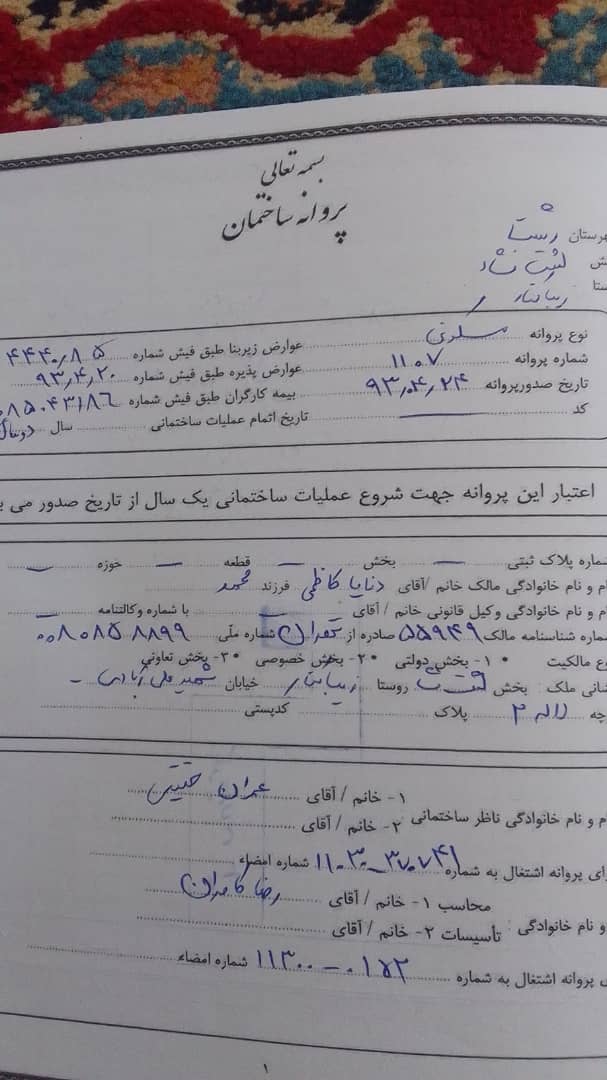 بسمه تعالی
پروانه ساختمان
هرستان رشت
ش لشت نشاء
ستا زیباکنار
نوع پروانه مسکونی
شماره پروانه ۱۱۰۷
تاریخ صدورپروانه ۹۳,۰۴,۲۴
کد
عوارض زیربنا طبق فیش شماره ۴۴۴۰,۸۵
عوارض پذیره طبق فیش شماره ۹۳,۴,۲۰
بیمه کارگران طبق فیش شماره
تاریخ اتمام عملیات ساختمانی سال دو سال
اعتبار این پروانه جهت شروع عملیات ساختمانی یک سال از تاریخ صدور می ب
شماره پلاک ثبتی — بخش — قطعه — حوزه —
م و نام خانوادگی مالک خانم /آقای کاظمی فرزند محمد
م و نام خانوادگی وکیل قانونی خانم / آقای با شماره وکالتنامه —
ماره شناسنامه مالک ۵۵۹۴۹ صادره از تهران شماره ملّی ۰۰۸۰۸۵۸۸۹۹
وع مالکیت • ۱- بخش دولتی • ۲- بخش خصوصی • ۳- بخش تعاونی
شانی ملک : بخش لشت نشاء روستا زیباکنار خیابان شهید
چه لاله ۲ پلاک کدپستی
م و نام خانوادگی ناظر ساختمانی ۱- خانم / آقای عمران
۲- خانم / آقای
رای پروانه اشتغال به شماره ۱۱-۳۰-۳۷۰۷۴۱ شماره امضاء
و نام خانوادگی : محاسب ۱- خانم / آقای رضا کامران
تأسیسات ۲- خانم / آقای
ی پروانه اشتغال به شماره ۱۱۳۰۰-۰۱۷۲ شماره امضاء
۱